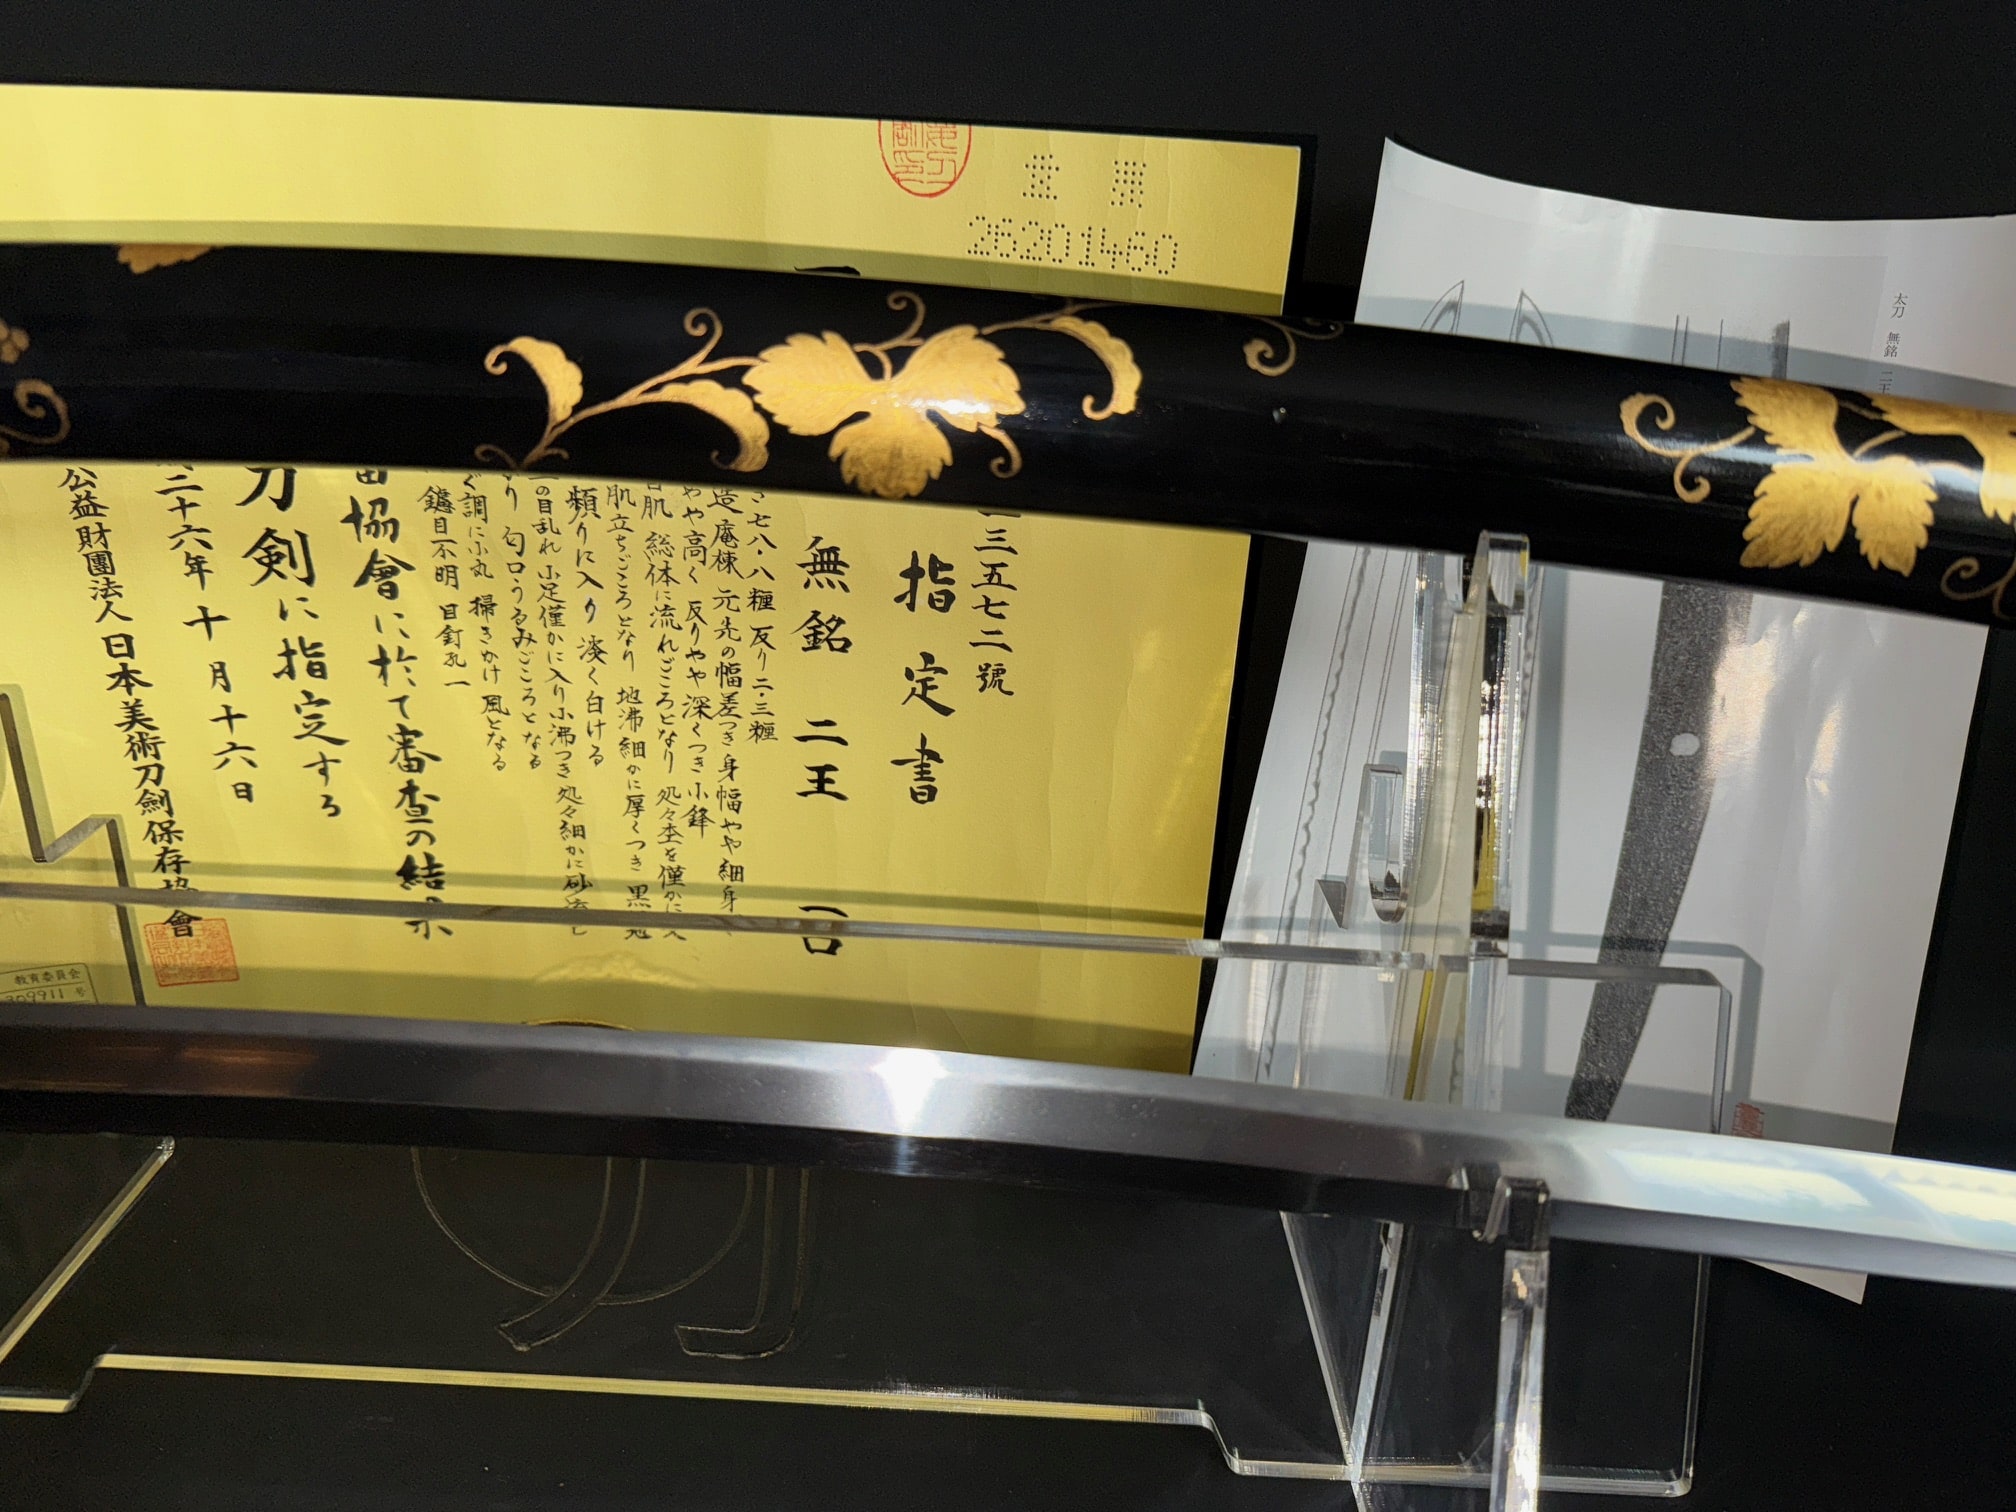 重票
26201460
三五七二號
指定書
無銘 二王 一口
さ七八・八糎 反り二・三糎
造 庵棟 元先の幅差つき 身幅やや細身
やや高く 反りやや深くつき 小鋒
肌 総体に流れごころとなり 処々杢を僅かに
肌立ちごころとなり 地沸細かに厚くつき 黒
頻りに入り 淡く白ける
の目乱れ 小足僅かに入り 小沸つき 処々細かに砂流し
り 匂口うるみごころとなる
ぐ調に小丸 掃きかけ風となる
鑢目不明 目釘孔一
協會に於て審査の結果
刀剣に指定する
二十六年十月十六日
公益財團法人日本美術刀劍保存協會
教育委員会
309911 号
太刀 無銘 二王